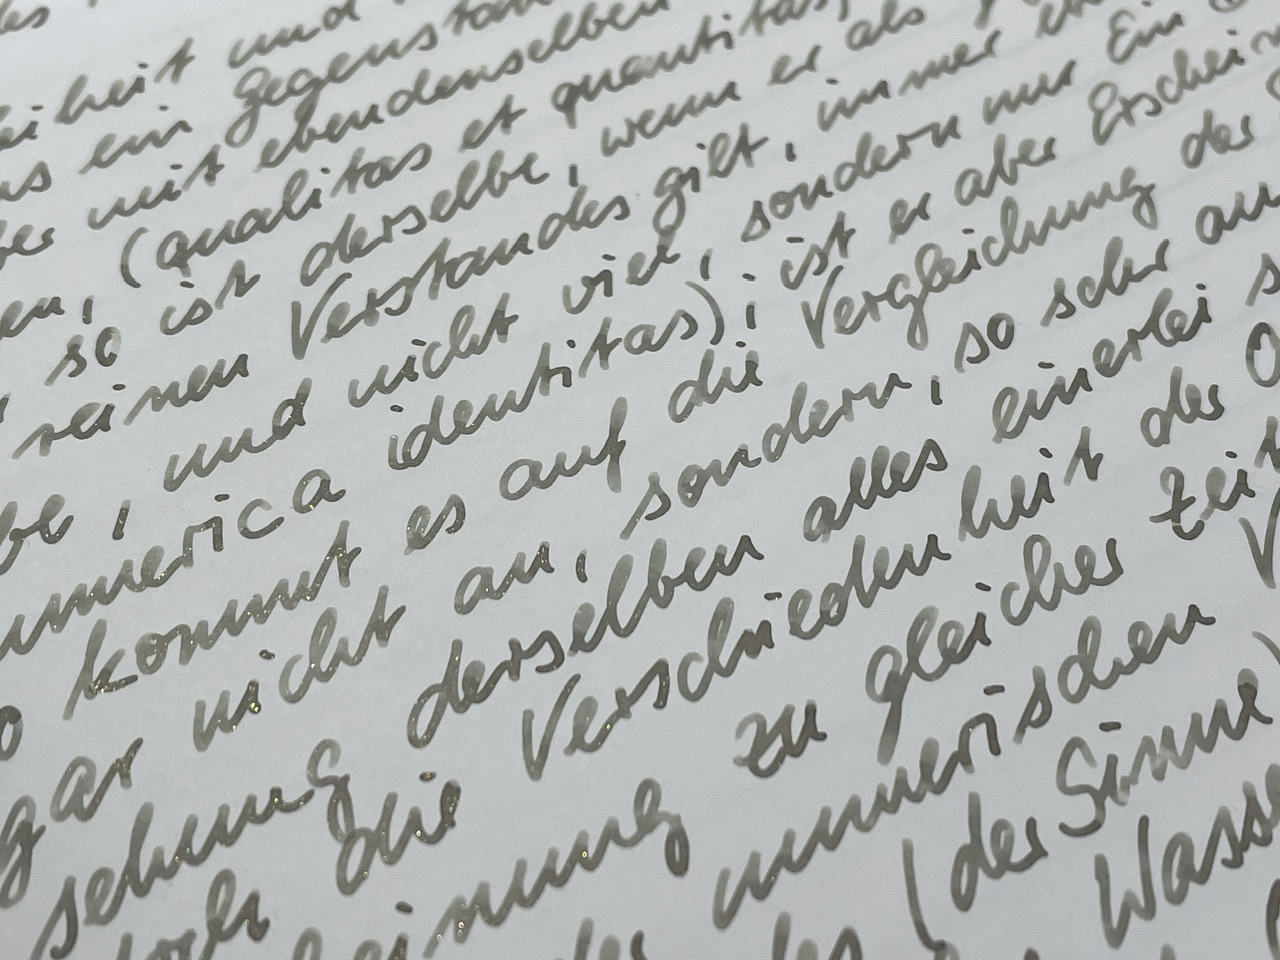 und
ein Gegenstand
mit ebendenselben
(qualitas et quantitas)
so ist derselbe, wenn er als
reinen Verstandes gilt, immer
und nicht viel, sondern nur Ein
numerica identitas); ist er aber Erschein
kommt es auf die Vergleichung der
gar nicht an, sondern, so sehr au
sehung derselben alles einerlei s
die Verschiedenheit der
einung zu gleicher Zeit
numerischen V
(der Sinne)
Wasse